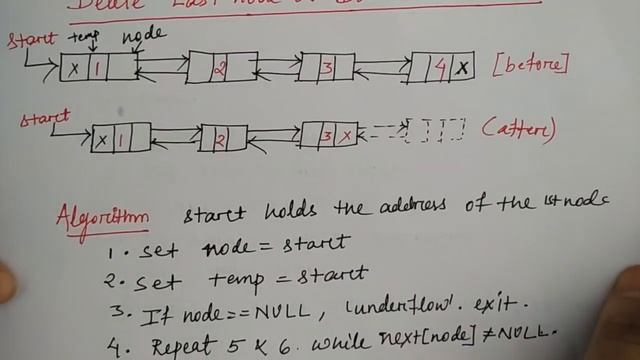 Delete Last node
start temp node
x 1 2 3 4 x [before]
start
x 1 2 3 x (after)
Algorithm start holds the address of the 1st node
1. set node = start
2. set temp = start
3. If node == NULL, 'underflow'. exit.
4. Repeat 5 & 6 while next[node] ≠ NULL.